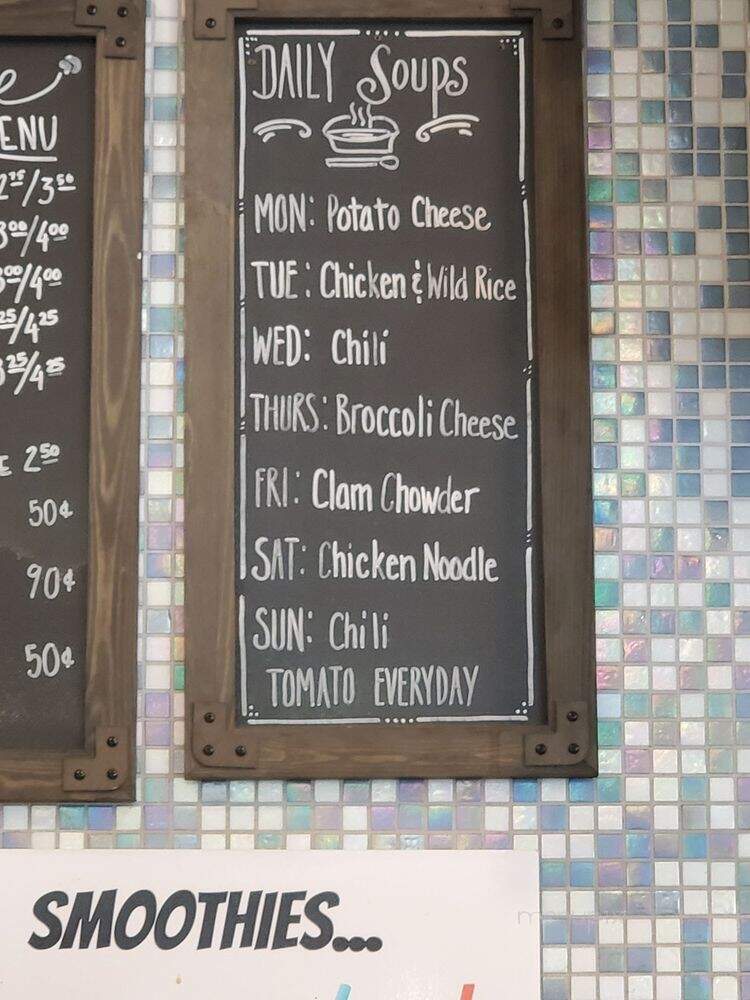 ENU
/3⁵⁰
/4⁰⁰
/4⁰⁰
25/4²⁵
²⁵/4²⁵
2⁵⁰
50¢
90¢
50¢
DAILY Soups
MON: Potato Cheese
TUE: Chicken & Wild Rice
WED: Chili
THURS: Broccoli Cheese
FRI: Clam Chowder
SAT: Chicken Noodle
SUN: Chili
TOMATO EVERYDAY
SMOOTHIES...